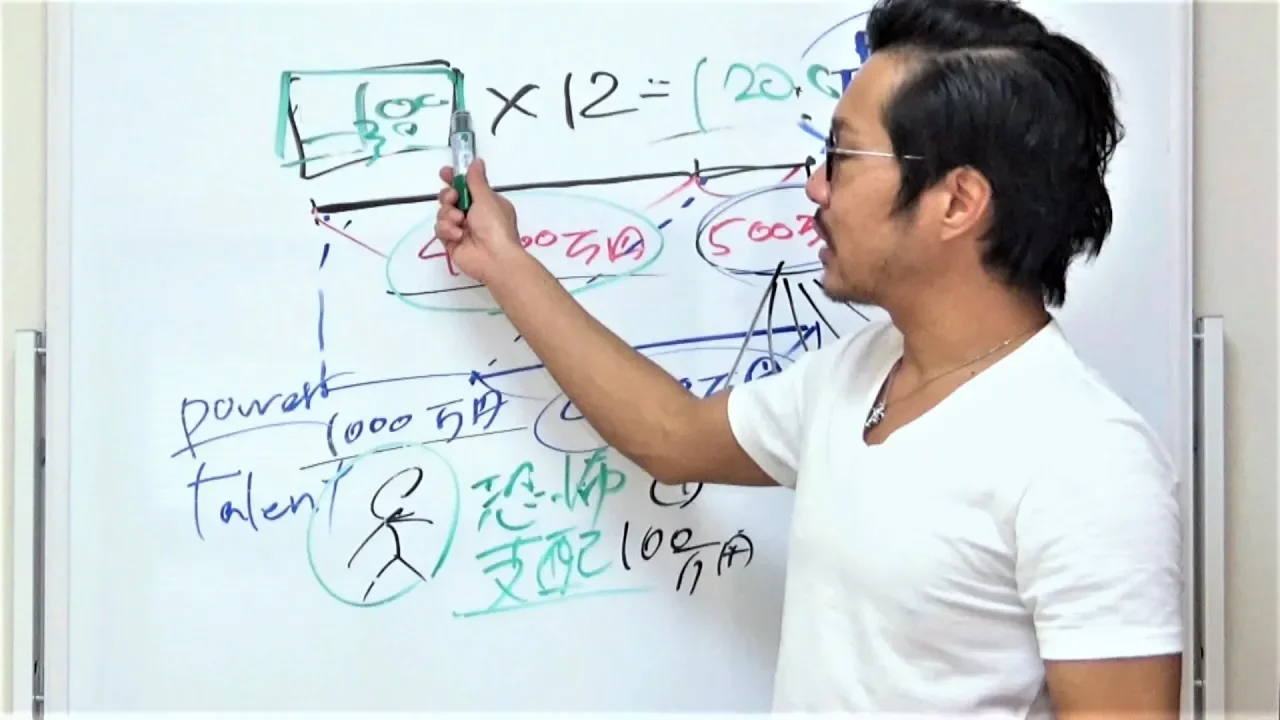 100 × 12 = 120.0
30
00万円
500万
power
1000万円
talent
恐怖
①
支配
100万円